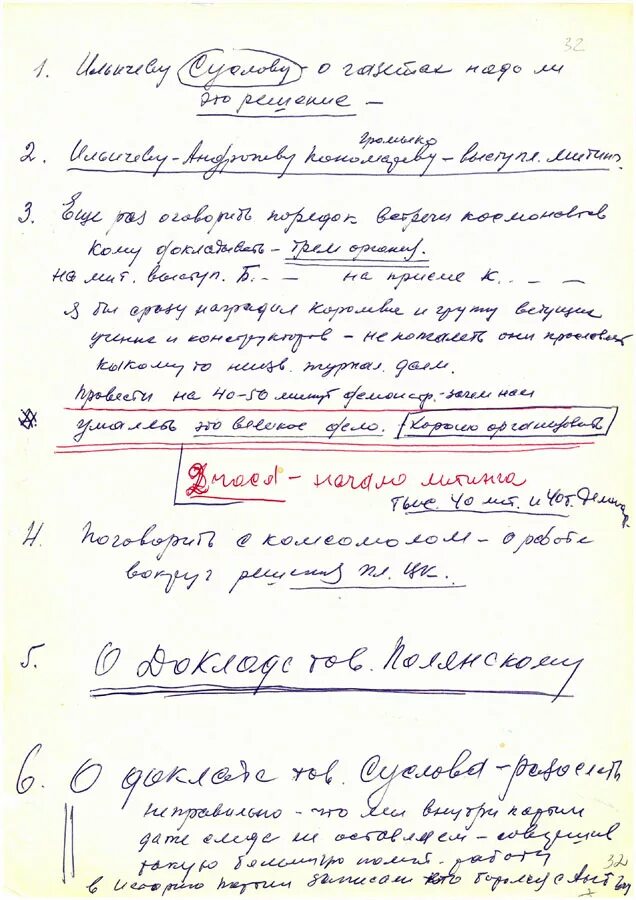 32
1. Ильичеву Суслову - о газетах надо ли
это решение -
Громыко
2. Ильичеву - Андропову Пономареву - выступл. митинг.
3. Еще раз оговорить порядок встречи космонавтов
Кому докладывать - трем организ.
на мит. выступ. Б. - - на приеме К. . - -
Я бы сразу наградил Королева и группу ведущих
ученых и конструкторов - не пожалеть они прославят
какому то неизв. журнал. даем.
Провести на 40-50 минут демонстр. - зачем нам
умалять это великое дело. Хорошо организовать
2 часа - начало митинга
тыс. 40 мит. и 40 т.
4. Поговорить с комсомолом - о работе
вокруг решения Пл. ЦК.
5. О Докладе тов. Полянскому
6. О докладе тов. Суслова - разослать
неправильно - что мы внутри партии
даже следа не оставляем - совершив
такую большую полит. работу
32
в историю партии записали кто боролся с